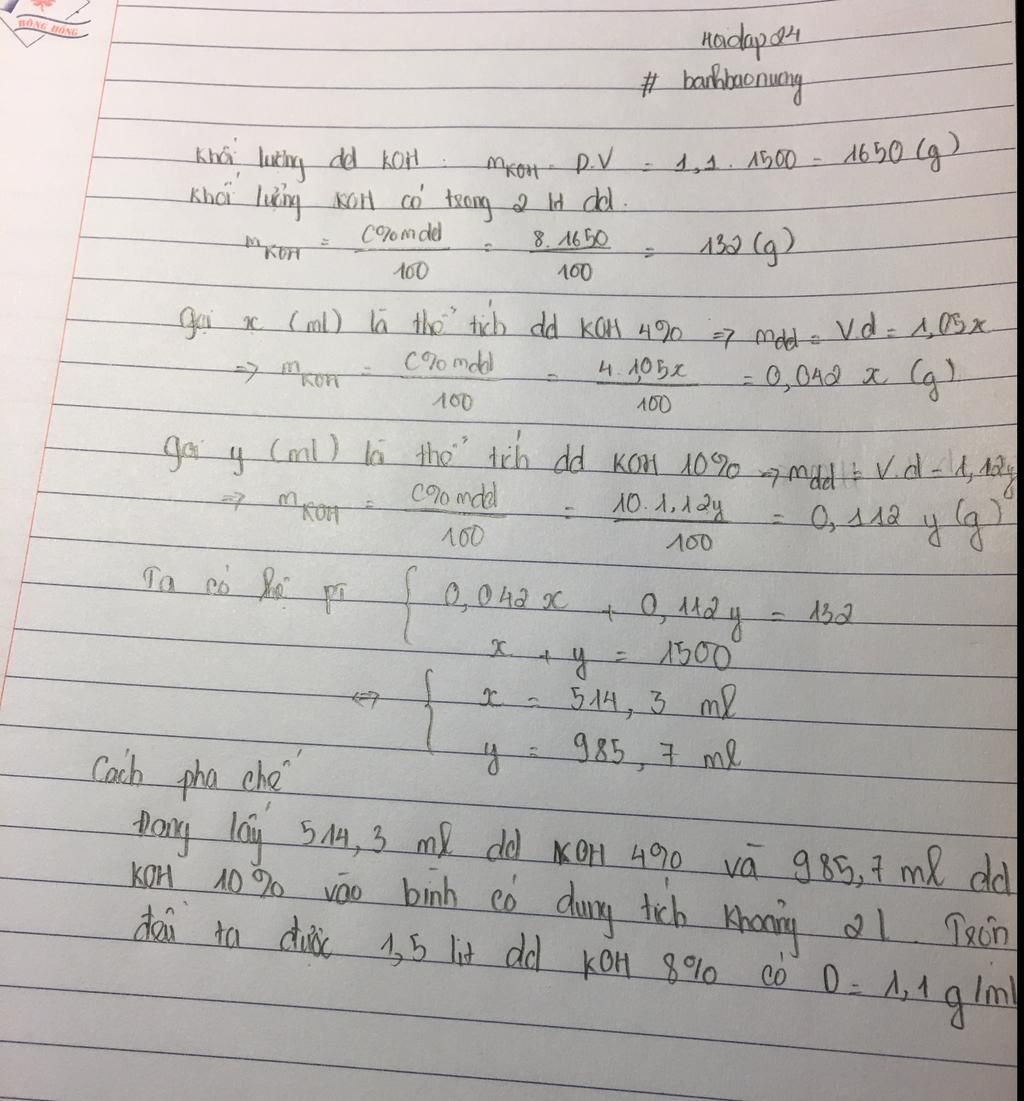 HỒNG HỒNG
Hoidap24
# banhbaonuong
Khối lượng dd KOH: mKOH = D.V = 1,1 . 1500 = 1650 (g)
Khối lượng KOH có trong 2 lít dd.
mKOH = C%mdd/100 = 8.1650/100 = 132 (g)
Gọi x (ml) là thể tích dd KOH 4% => mdd = V.d = 1,05x
=> mKOH = C%mdd/100 = 4.1,05x/100 = 0,042 x (g)
Gọi y (ml) là thể tích dd KOH 10% => mdd = V.d = 1,12y
=> mKOH = C%mdd/100 = 10.1,12y/100 = 0,112 y (g)
Ta có hệ pt { 0,042x + 0,112y = 132
x + y = 1500
<=> { x = 514,3 ml
y = 985,7 ml
Cách pha chế
Đong lấy 514,3 ml dd KOH 4% và 985,7 ml dd
KOH 10% vào bình có dung tích khoảng 2l. Trộn
đều ta được 1,5 lit dd KOH 8% có D = 1,1 g/ml